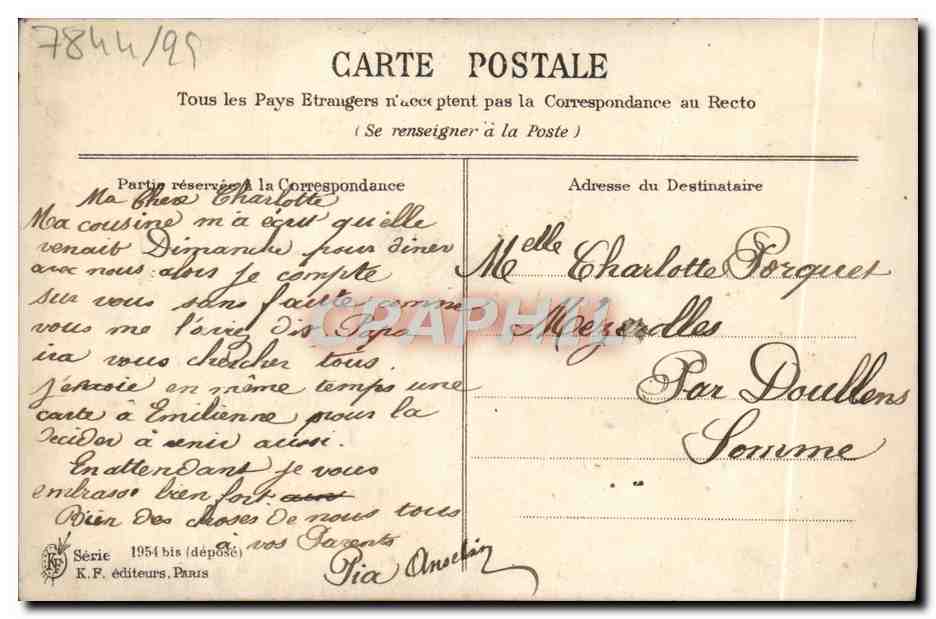 7844/95
CARTE POSTALE
Tous les Pays Etrangers n'acceptent pas la Correspondance au Recto
(Se renseigner à la Poste)
Partie réservée à la Correspondance
Ma Chere Charlotte
Ma cousine m'a écrit qu'elle
venait Dimanche pour diner
avec nous alors je compte
sur vous sans faute comme
vous me l'avez dis Papa
ira vous chercher tous.
j'envoie en même temps une
carte à Emilienne pour la
decider à venir aussi.
En attendant je vous
embrasse bien fort
Bien des choses de nous tous
à vos Parents
Pia
Adresse du Destinataire
Melle Charlotte Porquet
Mézerolles
Par Doullens
Somme
CPAPHIL
KF
Série 1954 bis (déposé)
K.F. éditeurs, PARIS